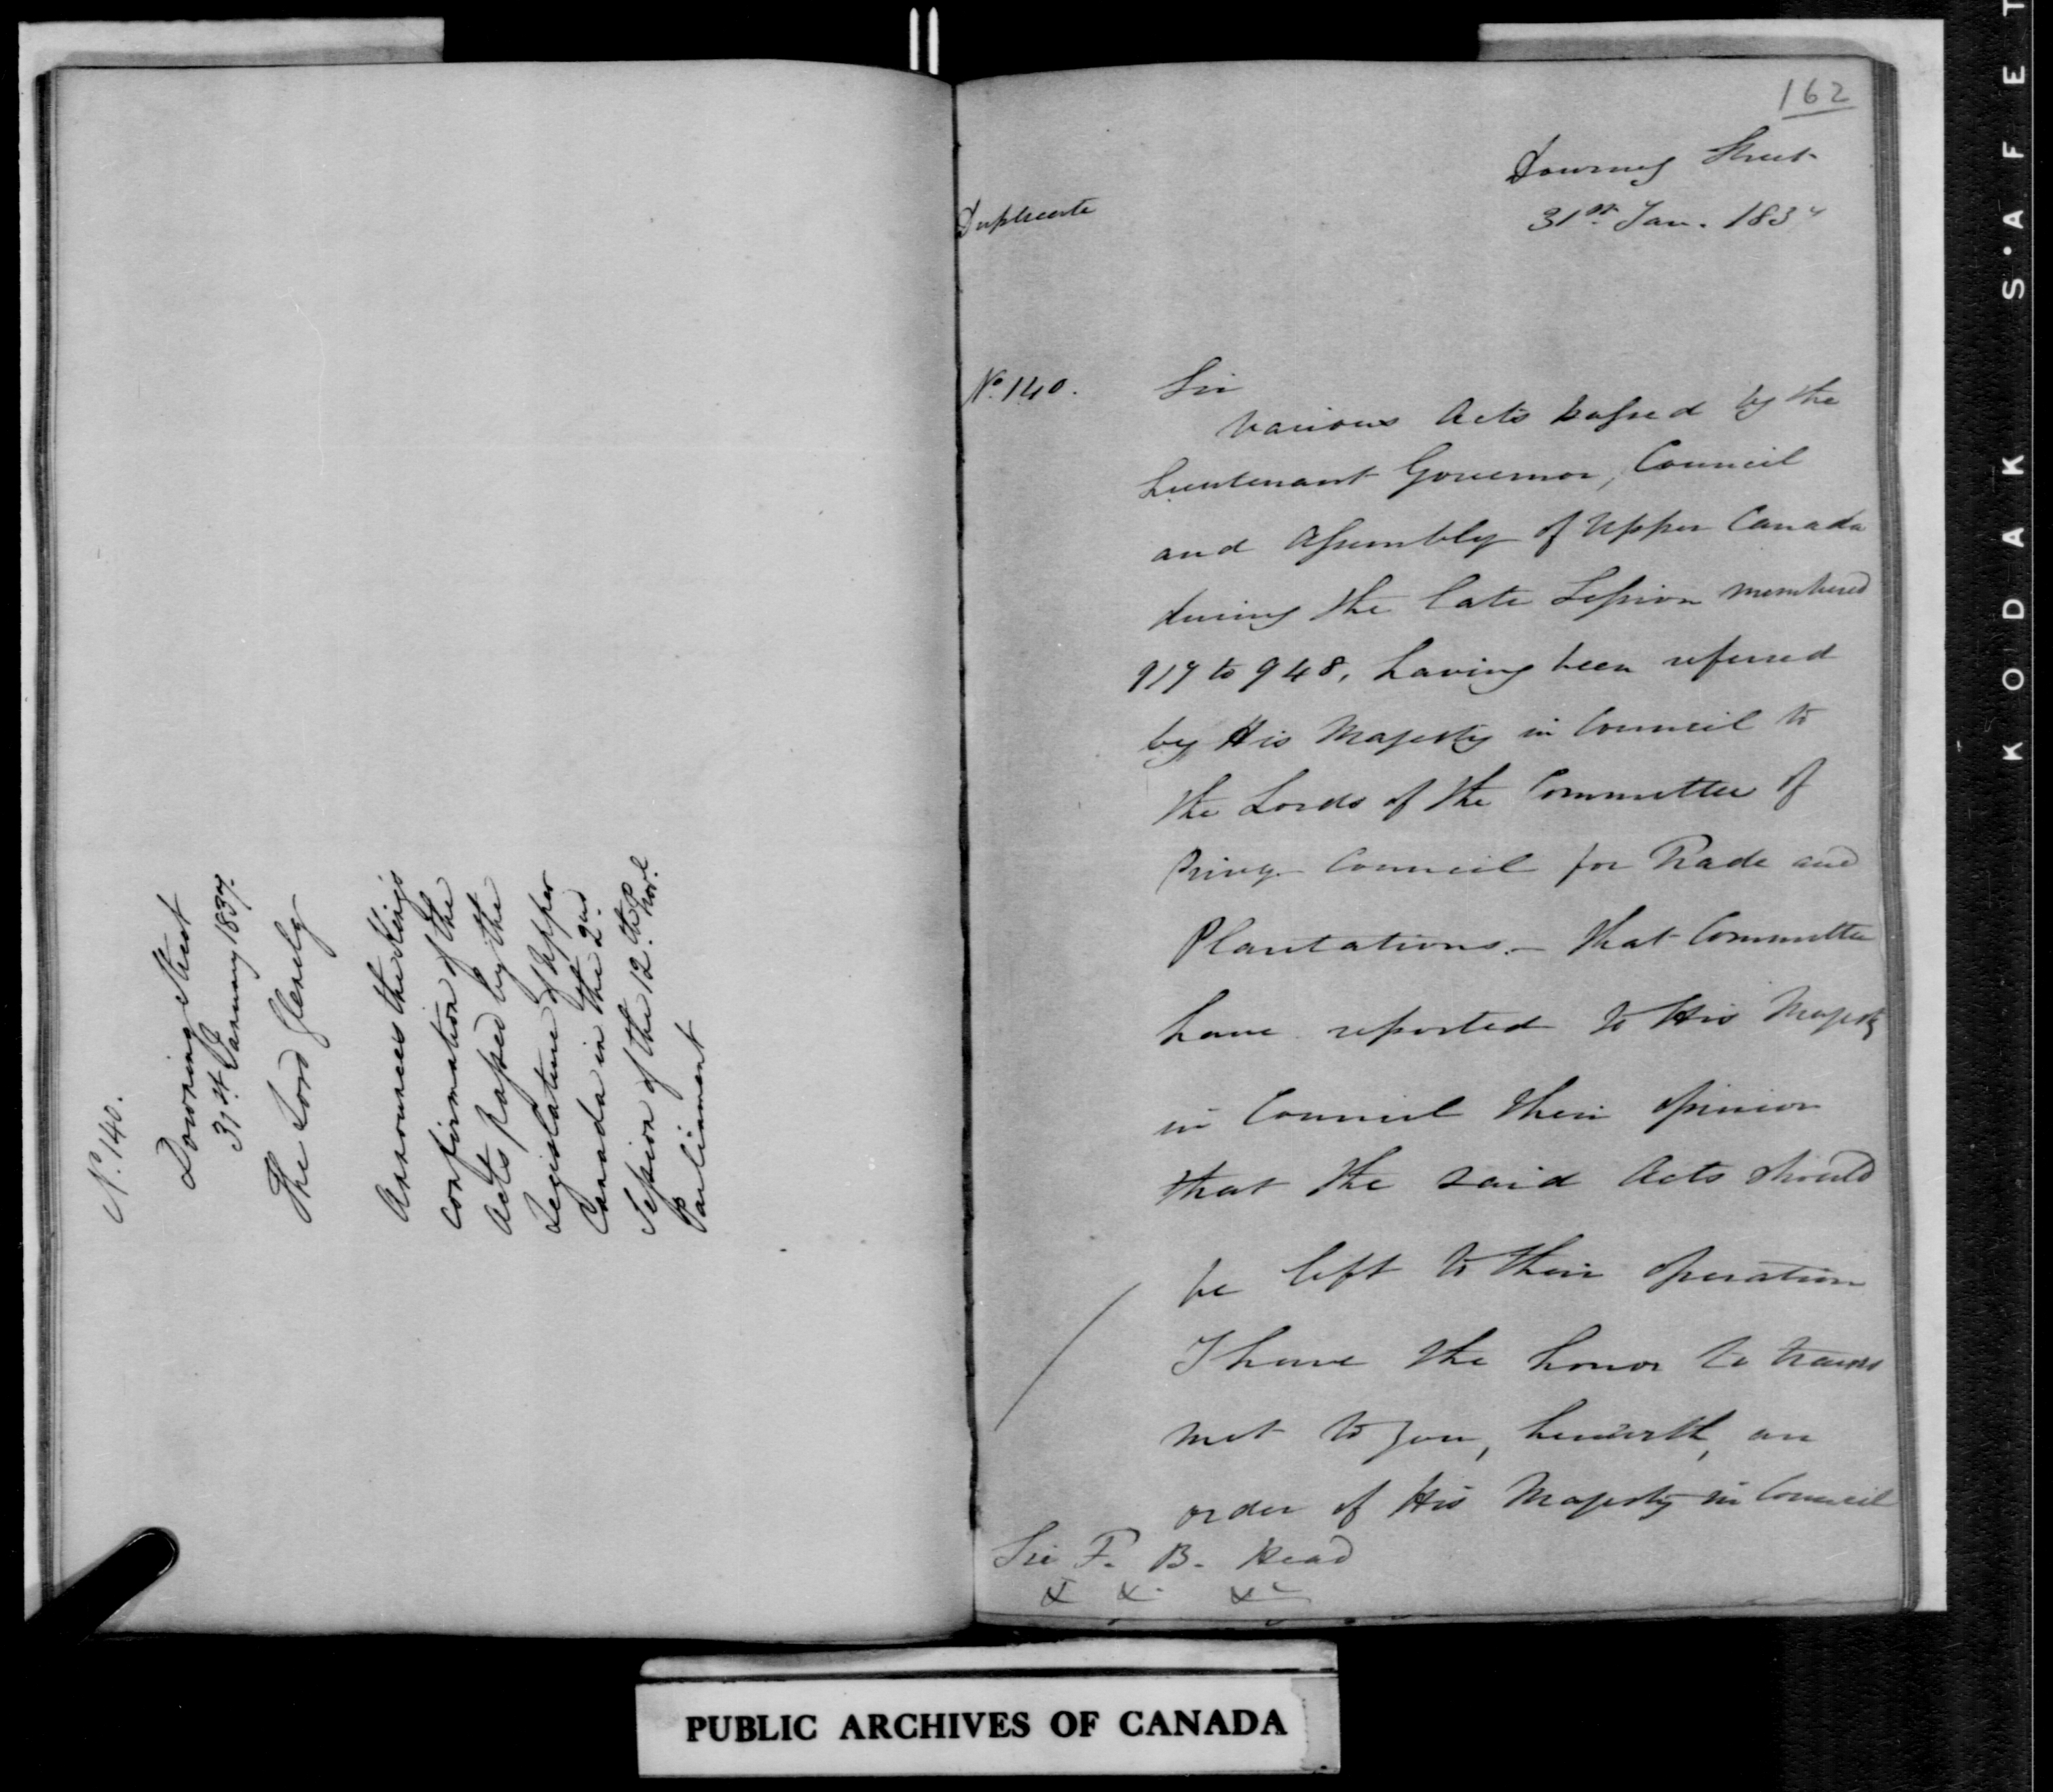 N.o 140.
Downing Street
31st. January 1837.
The Lord Glenelg
Announces the King's
confirmation of the
Acts Passed by the
Legislature of Upper
Canada in the 2nd.
Session of the 12.th Prov.l
Parliament
162
Downing Street
31st. Jan. 1837
Duplicate
No. 140.
Sir
Various Acts passed by the
Lieutenant Governor, Council
and Assembly of Upper Canada
during the late Session numbered
917 to 948, having been referred
by His Majesty in Council to
the Lords of the Committee of
Privy Council for Trade and
Plantations. - that Committee
have reported to His Majesty
in Council their opinion
that the said Acts should
be left to their operation
I have the honor to trans
mit to you, herewith, an
order of His Majesty in Council
Sir F. B. Head
& &. &c
PUBLIC ARCHIVES OF CANADA
KODAK S·A F E T